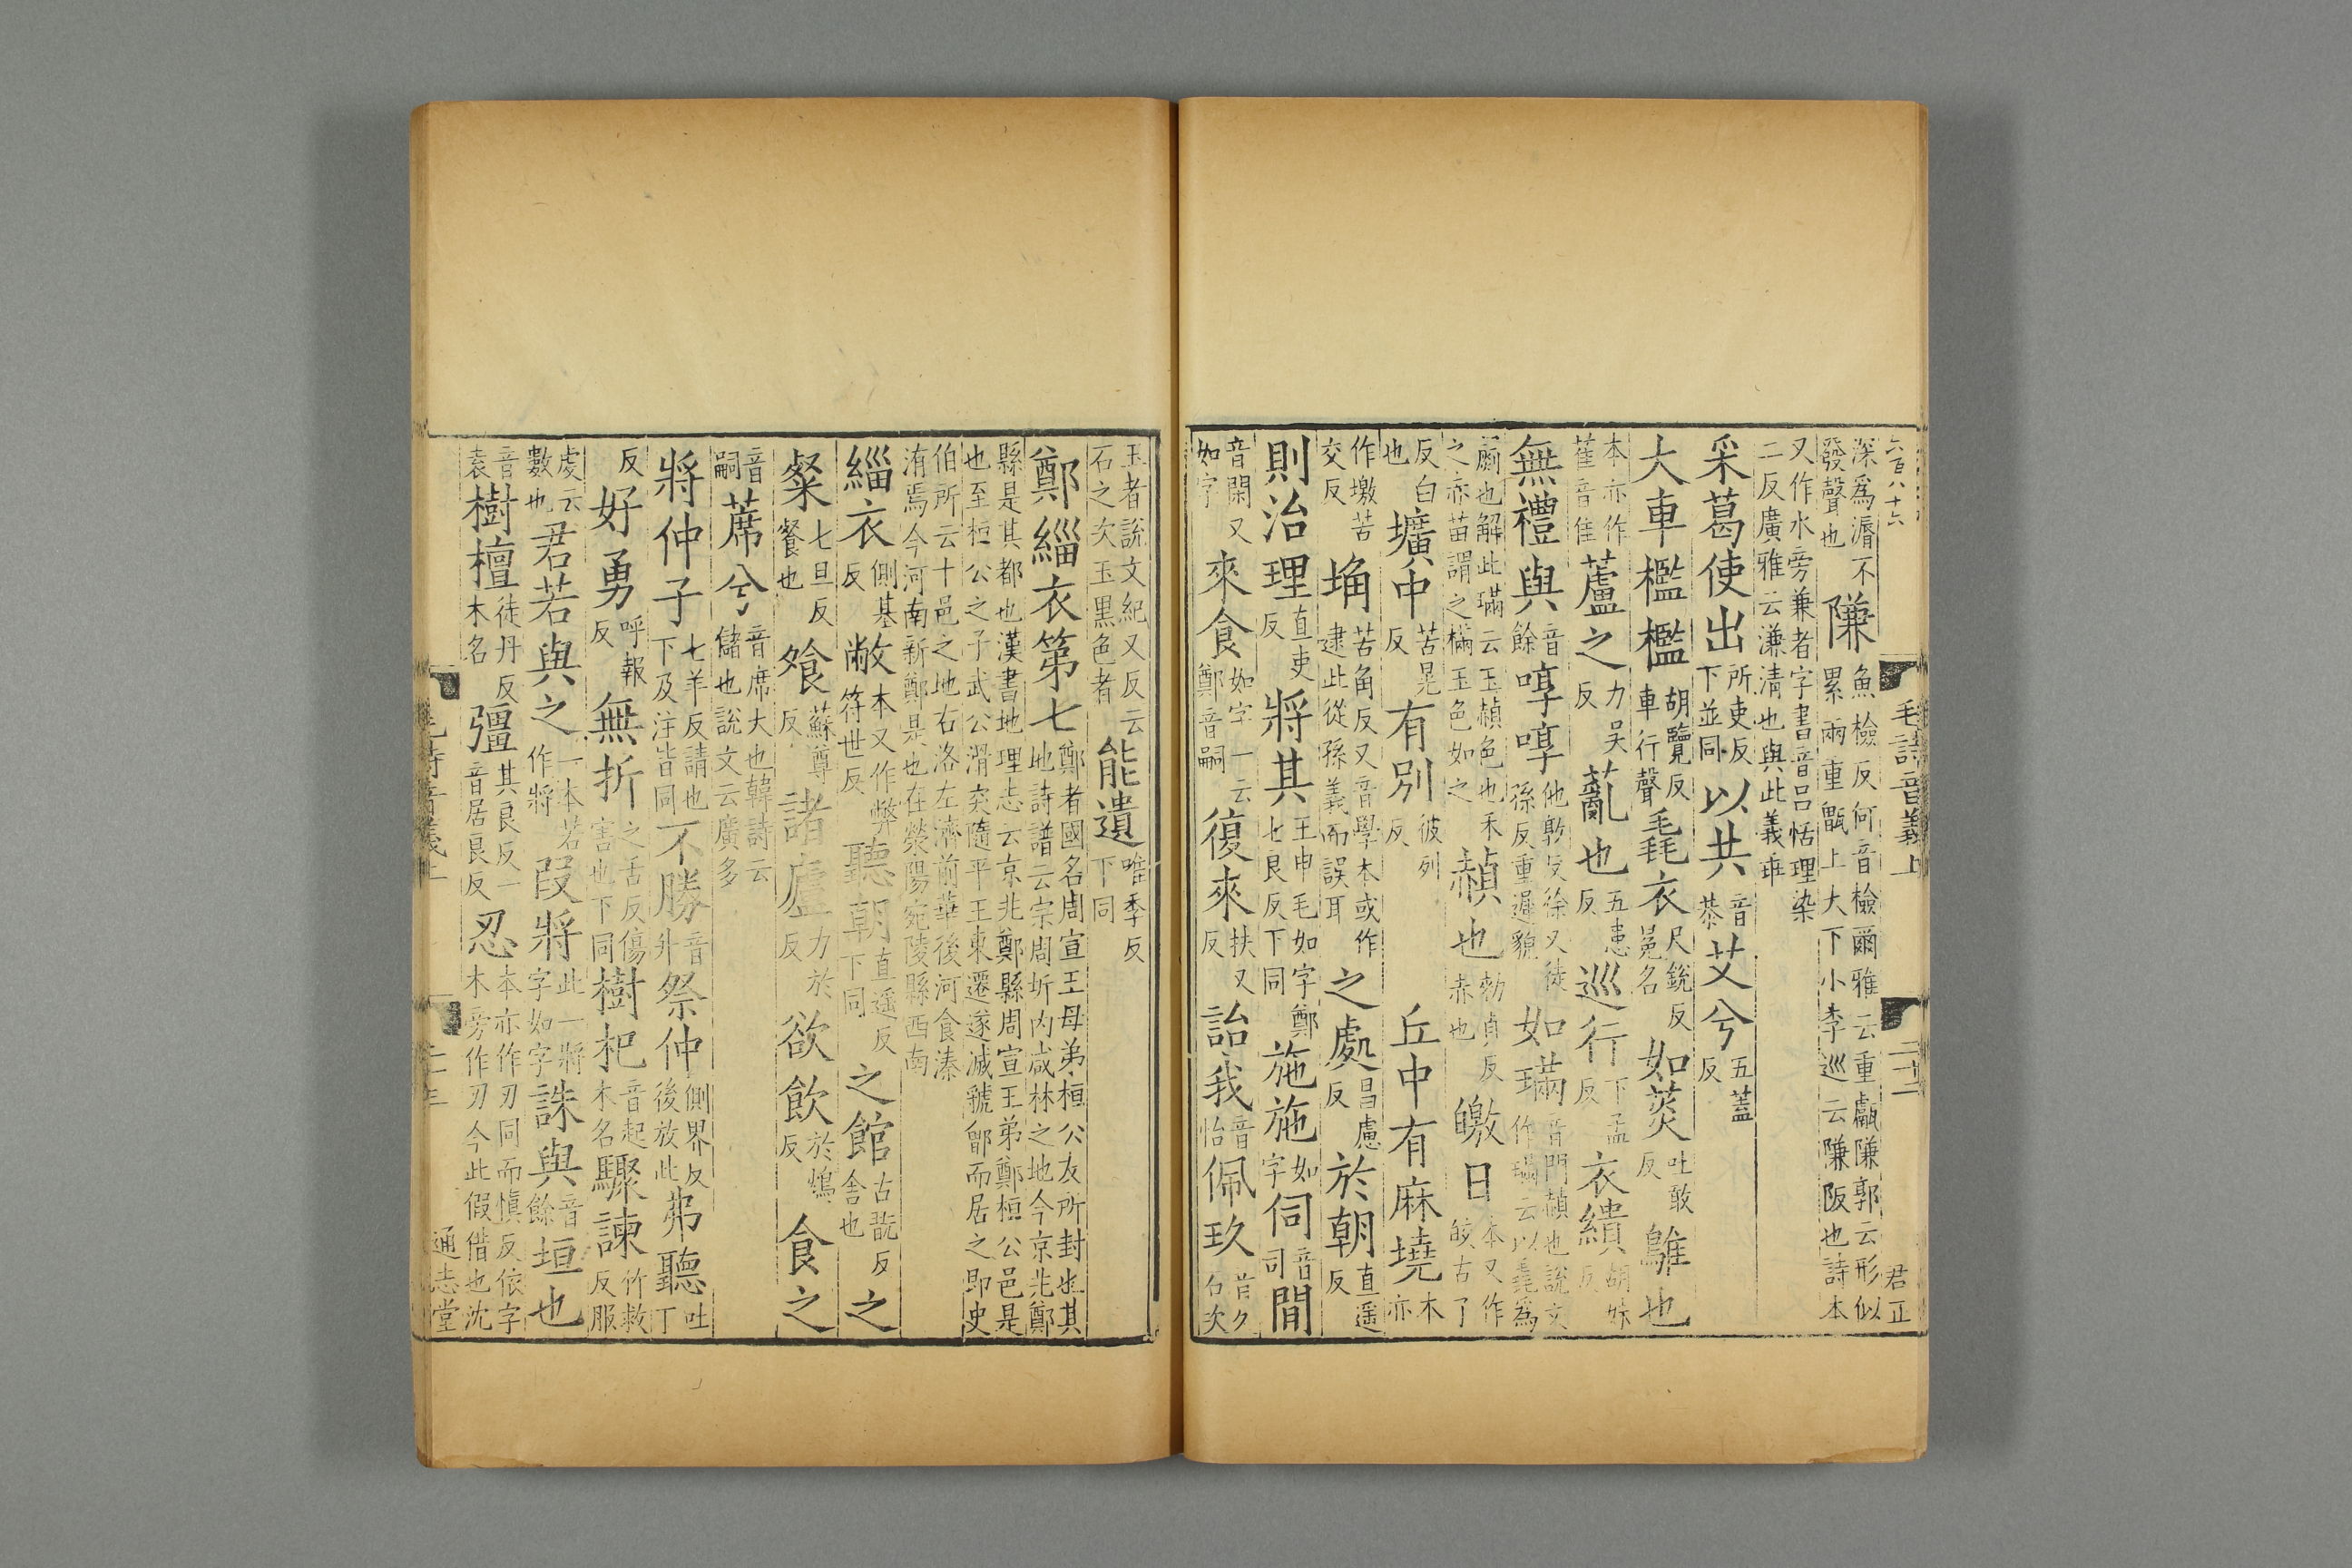 六百八十六 毛詩音義上 二十二 君正
深爲漘不發聲也 隒 魚檢反何音檢爾雅云重甗隒郭云形似累兩重甑上大下小李巡云隒阪也詩本
又作水旁兼者字書音呂恬理染二反廣雅云濂清也與此義乖
采葛使出 所吏反下並同 以共 音恭 艾兮 五蓋反
大車檻檻 胡覽反車行聲 毳衣 尺銳反冕名 如菼 吐敢反 鵻也
本亦作萑音隹 蘆之 力吴反 薍也 五患反 巡行 下孟反 衣繢 胡妹反
無禮與 音餘 啍啍 他敦反徐又徒孫反重遲貌 如璊 音門赬也說文作璊云以毳爲
罽也解此璊云玉赬色也禾之赤苗謂之樠玉色如之 赬也 勑貞反赤也 皦日 本又作皎古了
反白也 壙中 苦晃反 有別 彼列反 丘中有麻墝 木亦
作墽苦交反 埆 苦角反又音學本或作逮此從孫義而誤耳 之處 昌慮反 於朝 直遥反
則治理 直吏反 將其 王申毛如字鄭七良反下同 施施 如字 伺 音司 間
音閑又如字 來食 如字一云鄭音嗣 復來 扶又反 詒我 音怡 佩玖 音久石次
玉者說文紀又反云石之次玉黑色者 能遺 唯季反下同
鄭緇衣第七 鄭者國名周宣王母弟桓公友所封也其地詩譜云宗周圻内咸林之地今京兆鄭
縣是其都也漢書地理志云京兆鄭縣周宣王弟鄭桓公邑是也至桓公之子武公滑突隨平王東遷遂滅虢鄶而居之即史
伯所云十邑之地右洛左濟前華後河食溱洧焉今河南新鄭是也在滎陽宛陵縣西南
緇衣 側基反 敝 本又作弊符世反 聽朝 直遥反下同 之館 古翫反舍也 之
粲 七旦反餐也 飧 蘇尊反 諸廬 力於反 欲飲 於鴆反 食之
音嗣 蓆兮 音席大也韓詩云儲也說文云廣多
將仲子 七羊反請也下及注皆同 不勝 音升 祭仲 側界反後放此 弗聽 吐丁
反 好勇 呼報反 無折 之舌反傷害也下同 樹杞 音起木名 驟諫 仕救反服
虔云數也 君若與之 一本若作將 叚將 此一將字如字 誅與 音餘 垣也
音袁 樹檀 徒丹反木名 彊 其良反一音居良反 忍 本亦作刃同而愼反依字木旁作刃今此假借也沈
毛詩音義上 二十三 通志堂